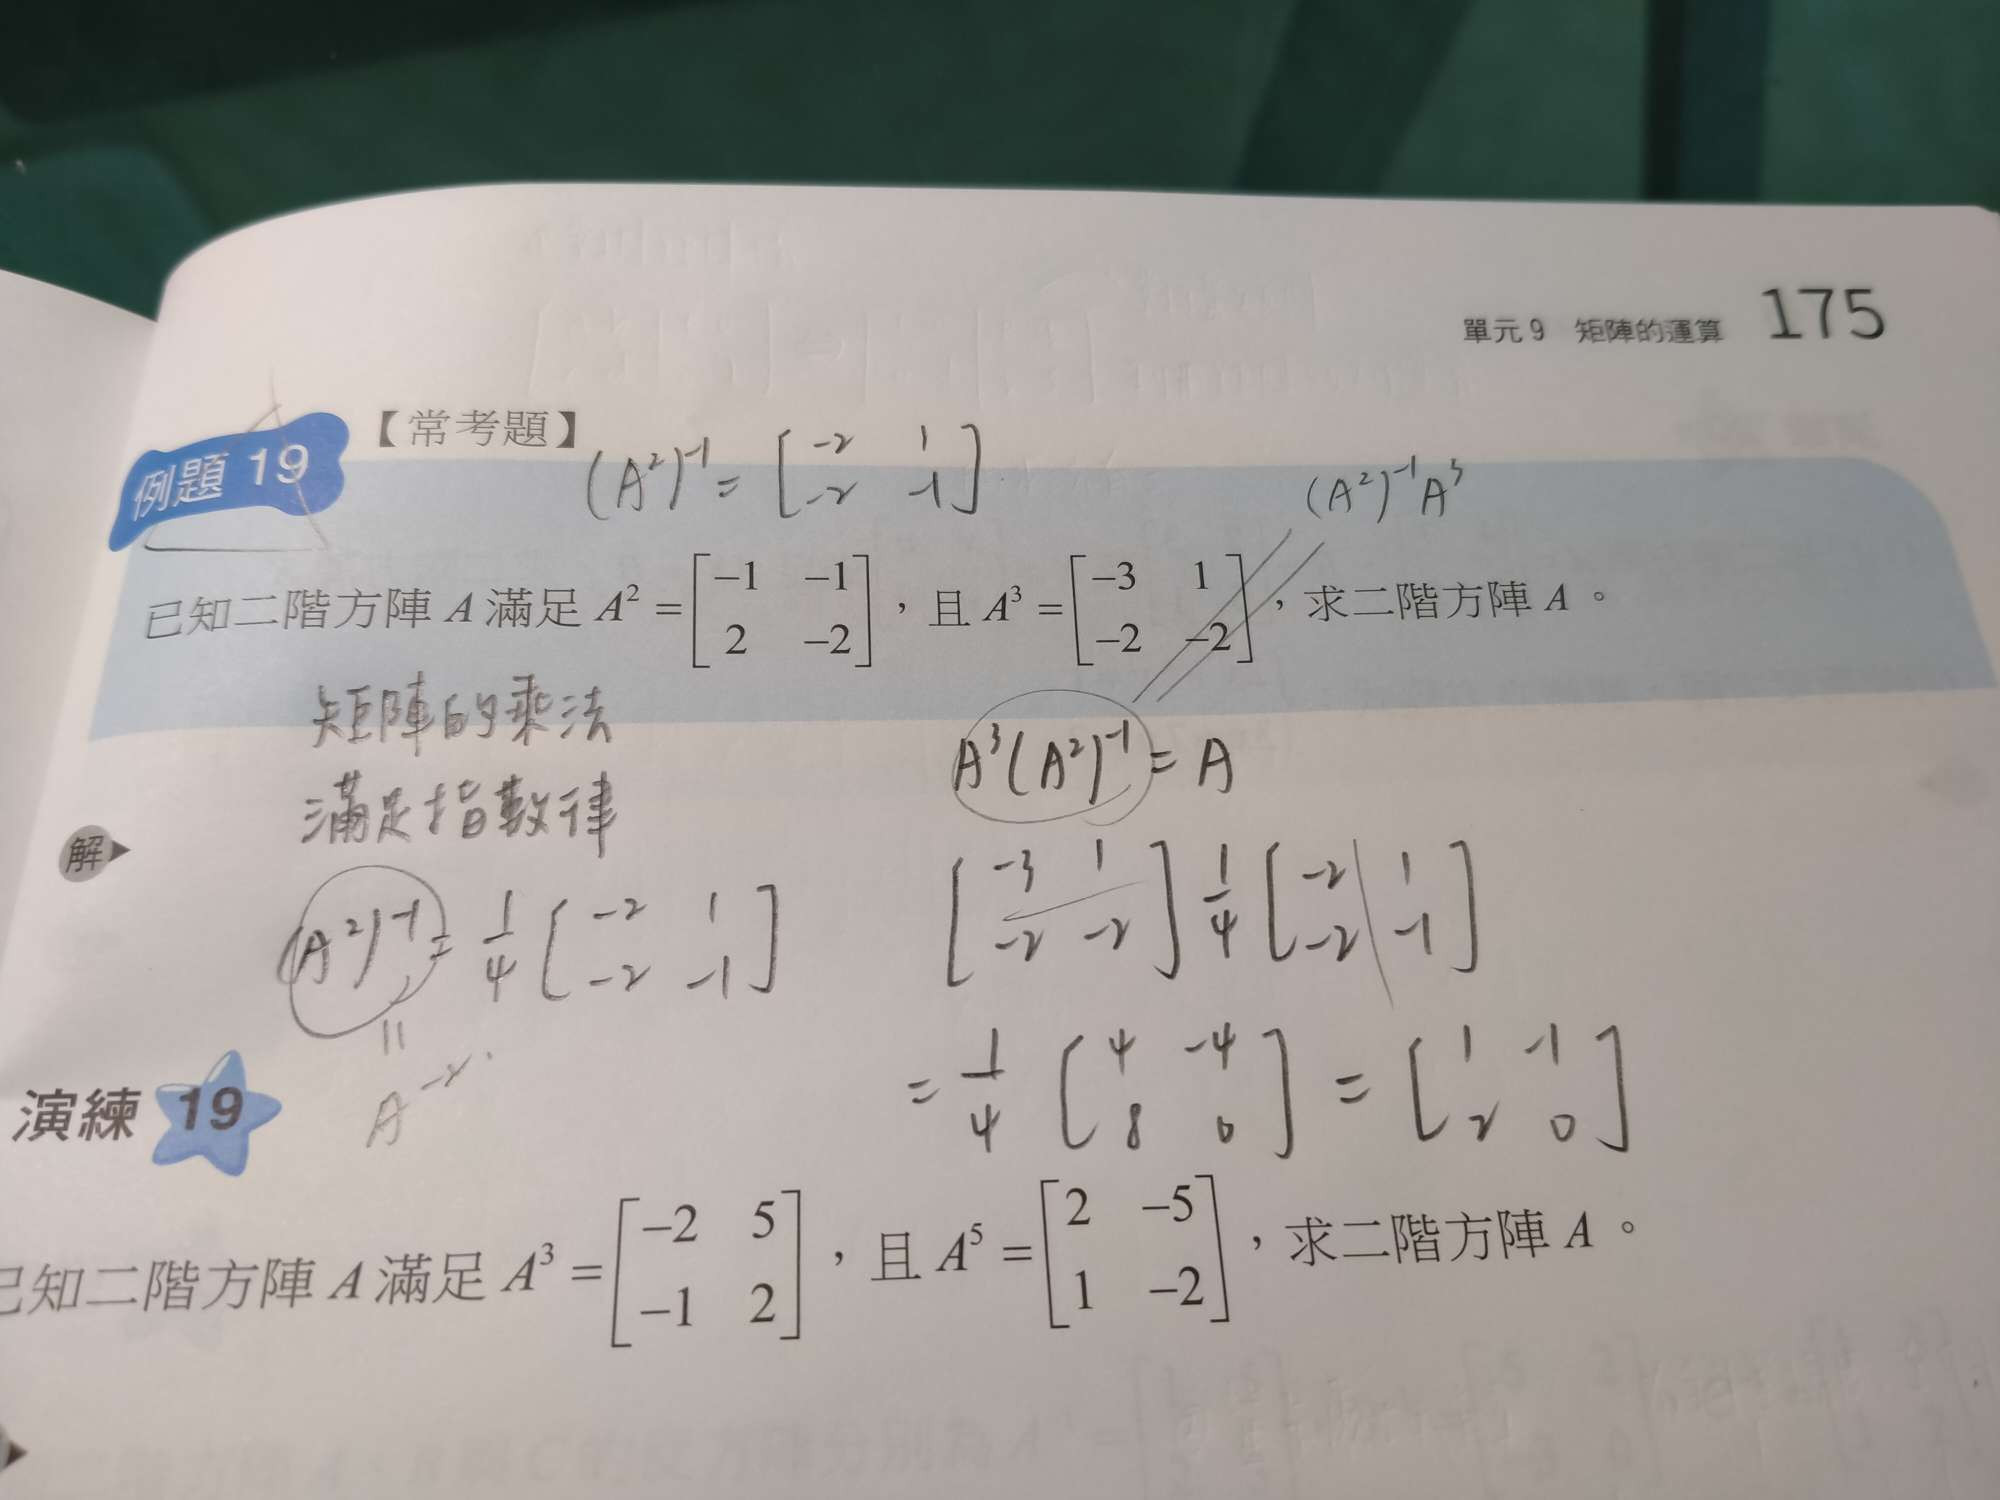 單元 9 矩陣的運算 175
【常考題】
例題 19
(A²)⁻¹ = [-2 1; -2 -1]
(A²)⁻¹A³
已知二階方陣 A 滿足 A² = [-1 -1; 2 -2]，且 A³ = [-3 1; -2 -2]，求二階方陣 A。
矩陣的乘法
滿足指數律
A³(A²)⁻¹ = A
解
(A²)⁻¹ = 1/4 [-2 1; -2 -1]
[-3 1; -2 -2] 1/4 [-2 1; -2 -1]
=
A⁻²
= 1/4 [4 -4; 8 0] = [1 -1; 2 0]
演練 19
已知二階方陣 A 滿足 A³ = [-2 5; -1 2]，且 A⁵ = [2 -5; 1 -2]，求二階方陣 A。